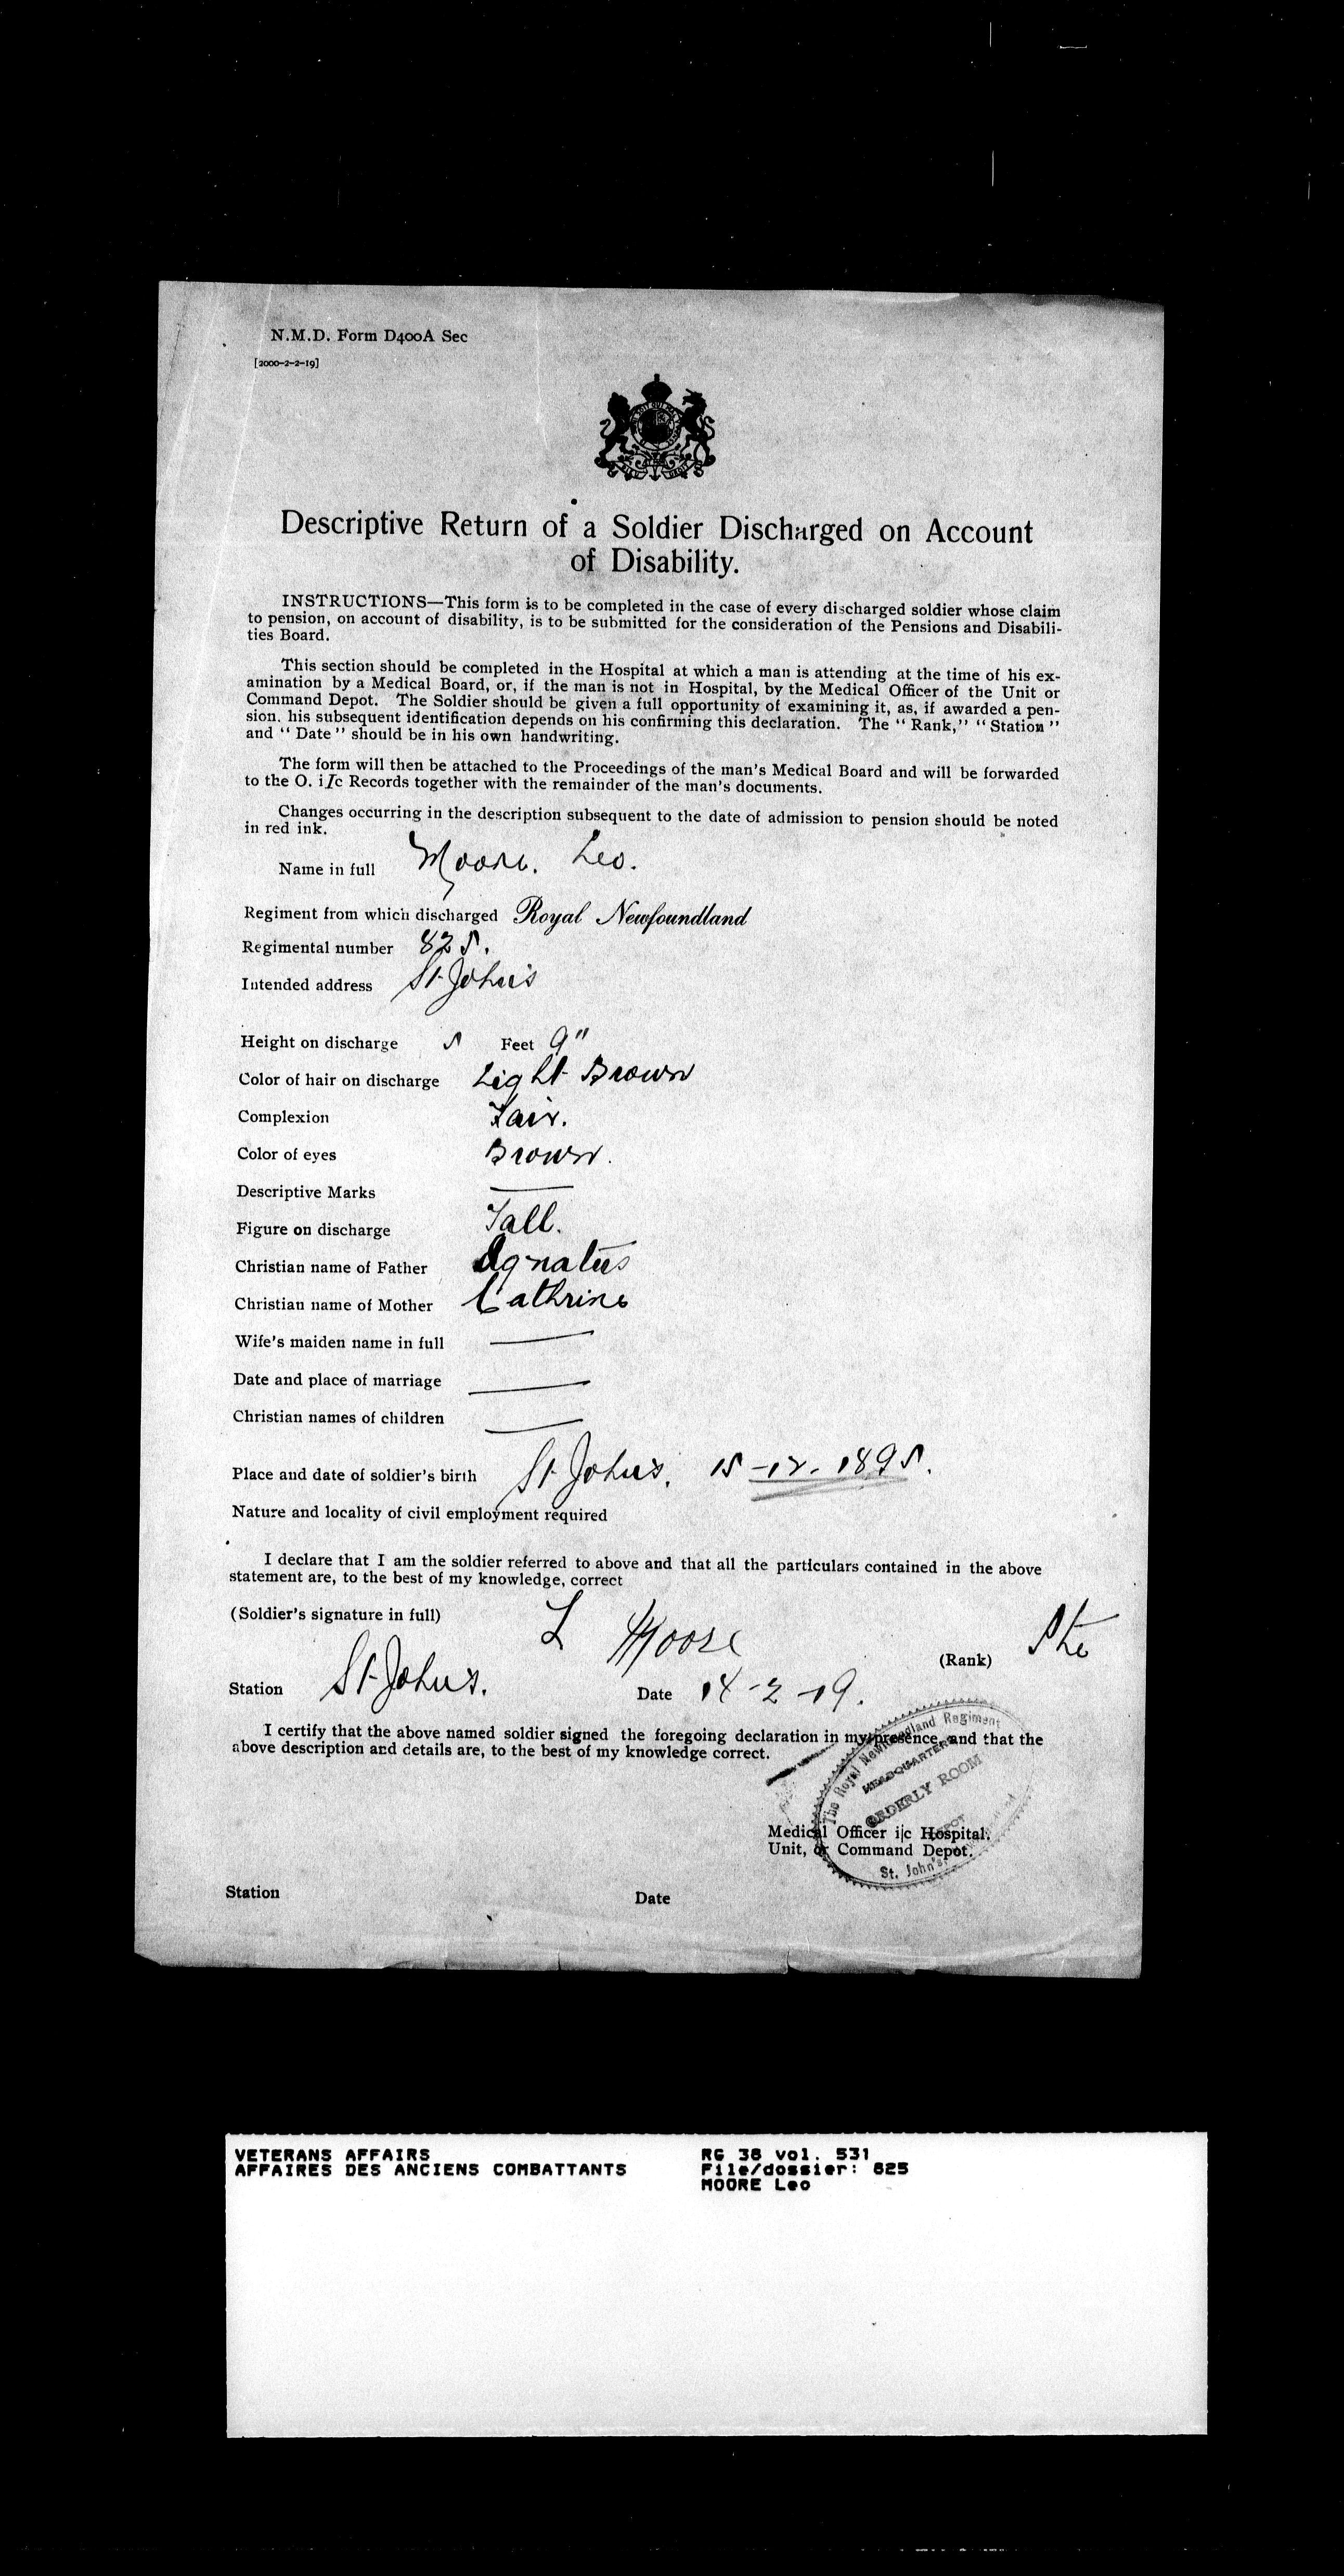 N.M.D. Form D400A Sec
[2000-2-2-19]
Descriptive Return of a Soldier Discharged on Account
of Disability.
INSTRUCTIONS—This form is to be completed in the case of every discharged soldier whose claim
to pension, on account of disability, is to be submitted for the consideration of the Pensions and Disabili-
ties Board.
This section should be completed in the Hospital at which a man is attending at the time of his ex-
amination by a Medical Board, or, if the man is not in Hospital, by the Medical Officer of the Unit or
Command Depot. The Soldier should be given a full opportunity of examining it, as, if awarded a pen-
sion, his subsequent identification depends on his confirming this declaration. The "Rank," "Station"
and "Date" should be in his own handwriting.
The form will then be attached to the Proceedings of the man's Medical Board and will be forwarded
to the O. i/c Records together with the remainder of the man's documents.
Changes occurring in the description subsequent to the date of admission to pension should be noted
in red ink.
Name in full Moore. Leo.
Regiment from which discharged Royal Newfoundland
Regimental number 825.
Intended address St John's
Height on discharge 5 Feet 9"
Color of hair on discharge Light Brown
Complexion Fair.
Color of eyes Brown.
Descriptive Marks —
Figure on discharge Tall.
Christian name of Father Ignatus
Christian name of Mother Cathrine
Wife's maiden name in full —
Date and place of marriage —
Christian names of children —
Place and date of soldier's birth St John's. 15-12-1895.
Nature and locality of civil employment required
I declare that I am the soldier referred to above and that all the particulars contained in the above
statement are, to the best of my knowledge, correct
(Soldier's signature in full) L Moore (Rank) Pte
Station St John's. Date 14-2-19.
I certify that the above named soldier signed the foregoing declaration in my presence, and that the
above description and details are, to the best of my knowledge correct.
The Royal Newfoundland Regiment
HEADQUARTERS
ORDERLY ROOM
DEPOT
St. John's,
Medical Officer i/c Hospital.
Unit, or Command Depot.
Station Date
VETERANS AFFAIRS RG 38 vol. 531
AFFAIRES DES ANCIENS COMBATTANTS File/dossier: 825
MOORE Leo